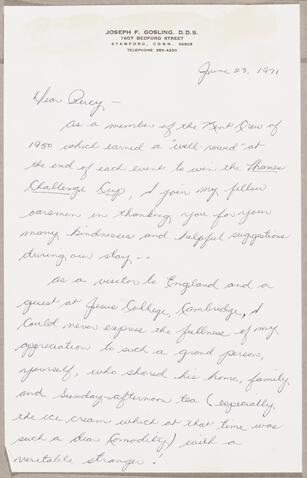 JOSEPH F. GOSLING, D.D.S.
1607 BEDFORD STREET
STAMFORD, CONN. 06905
TELEPHONE 359-4220
June 23, 1971
Dear Percy,-
As a member of the Kent Crew of
1950 which earned a "well-rowed" at
the end of each event to win the Thames
Challenge Cup, I join my fellow
oarsmen in thanking you for your
many kindnesses and helpful suggestions
during our stay..
As a visitor to England and a
guest at Jesus College, Cambridge, I
could never express the fullness of my
appreciation to such a grand person,
yourself, who shared his home, family,
and Sunday-afternoon tea (especially
the ice cream which at that time was
such a dear comodity,) with a
veritable stranger.